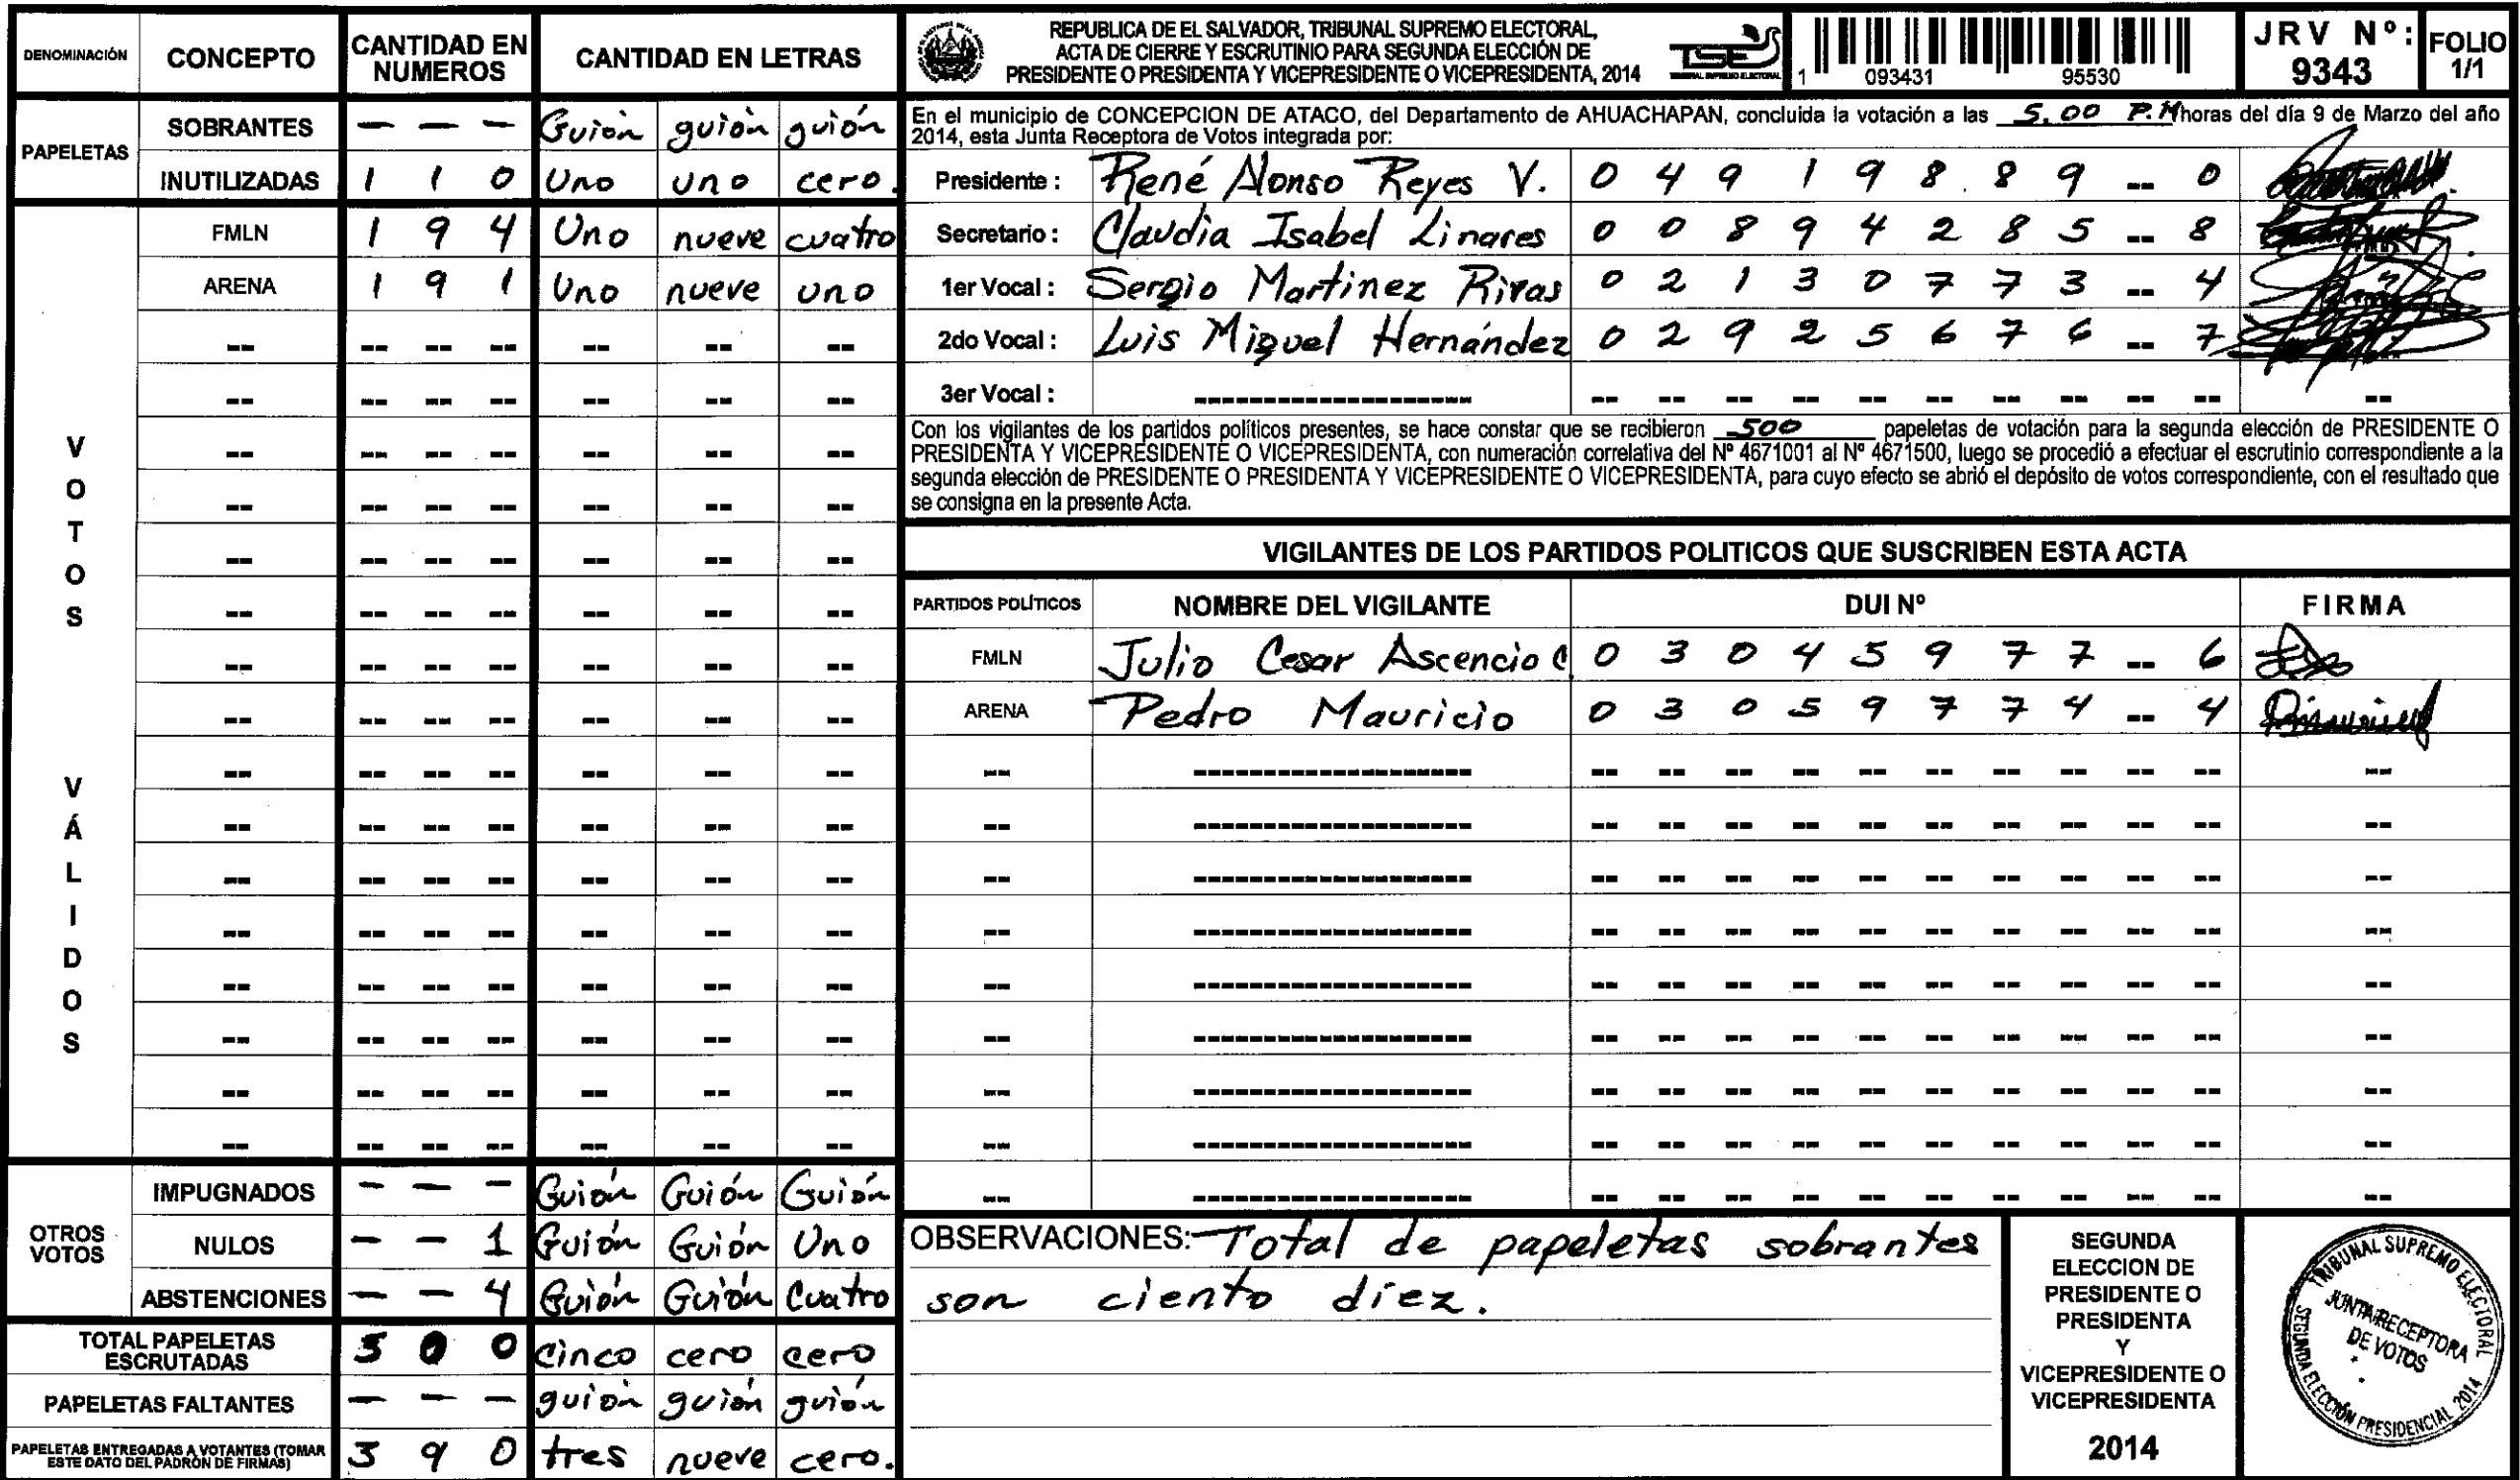 DENOMINACIÓN CONCEPTO CANTIDAD EN NUMEROS CANTIDAD EN LETRAS
PAPELETAS
SOBRANTES - - - Guión guión guión
INUTILIZADAS 1 1 0 Uno uno cero.
VOTOS VÁLIDOS
FMLN 1 9 4 Uno nueve cuatro
ARENA 1 9 1 Uno nueve uno
OTROS VOTOS
IMPUGNADOS - - - Guión Guión Guión
NULOS - - 1 Guión Guión Uno
ABSTENCIONES - - 4 Guión Guión Cuatro
TOTAL PAPELETAS ESCRUTADAS 5 0 0 cinco cero cero
PAPELETAS FALTANTES - - - guión guión guión
PAPELETAS ENTREGADAS A VOTANTES (TOMAR ESTE DATO DEL PADRÓN DE FIRMAS) 3 9 0 tres nueve cero.
REPUBLICA DE EL SALVADOR, TRIBUNAL SUPREMO ELECTORAL,
ACTA DE CIERRE Y ESCRUTINIO PARA SEGUNDA ELECCIÓN DE
PRESIDENTE O PRESIDENTA Y VICEPRESIDENTE O VICEPRESIDENTA, 2014
TSE
TRIBUNAL SUPREMO ELECTORAL
1 093431 95530
JRV Nº: 9343
FOLIO 1/1
En el municipio de CONCEPCION DE ATACO, del Departamento de AHUACHAPAN, concluida la votación a las 5.00 P.M horas del día 9 de Marzo del año
2014, esta Junta Receptora de Votos integrada por:
Presidente : René Alonso Reyes V. 0 4 9 1 9 8 8 9 -- 0
Secretario : Claudia Isabel Linares 0 0 8 9 4 2 8 5 -- 8
1er Vocal : Sergio Martinez Rivas 0 2 1 3 0 7 7 3 -- 4
2do Vocal : Luis Miguel Hernández 0 2 9 2 5 6 7 6 -- 7
3er Vocal :
Con los vigilantes de los partidos políticos presentes, se hace constar que se recibieron 500 papeletas de votación para la segunda elección de PRESIDENTE O
PRESIDENTA Y VICEPRESIDENTE O VICEPRESIDENTA, con numeración correlativa del Nº 4671001 al Nº 4671500, luego se procedió a efectuar el escrutinio correspondiente a la
segunda elección de PRESIDENTE O PRESIDENTA Y VICEPRESIDENTE O VICEPRESIDENTA, para cuyo efecto se abrió el depósito de votos correspondiente, con el resultado que
se consigna en la presente Acta.
VIGILANTES DE LOS PARTIDOS POLITICOS QUE SUSCRIBEN ESTA ACTA
PARTIDOS POLÍTICOS NOMBRE DEL VIGILANTE DUI Nº FIRMA
FMLN Julio Cesar Ascencio C 0 3 0 4 5 9 7 7 -- 6
ARENA Pedro Mauricio 0 3 0 5 9 7 7 4 -- 4
OBSERVACIONES: Total de papeletas sobrantes
son ciento diez.
SEGUNDA
ELECCION DE
PRESIDENTE O
PRESIDENTA
Y
VICEPRESIDENTE O
VICEPRESIDENTA
2014
TRIBUNAL SUPREMO ELECTORAL
JUNTA RECEPTORA
DE VOTOS
SEGUNDA ELECCIÓN PRESIDENCIAL 2014